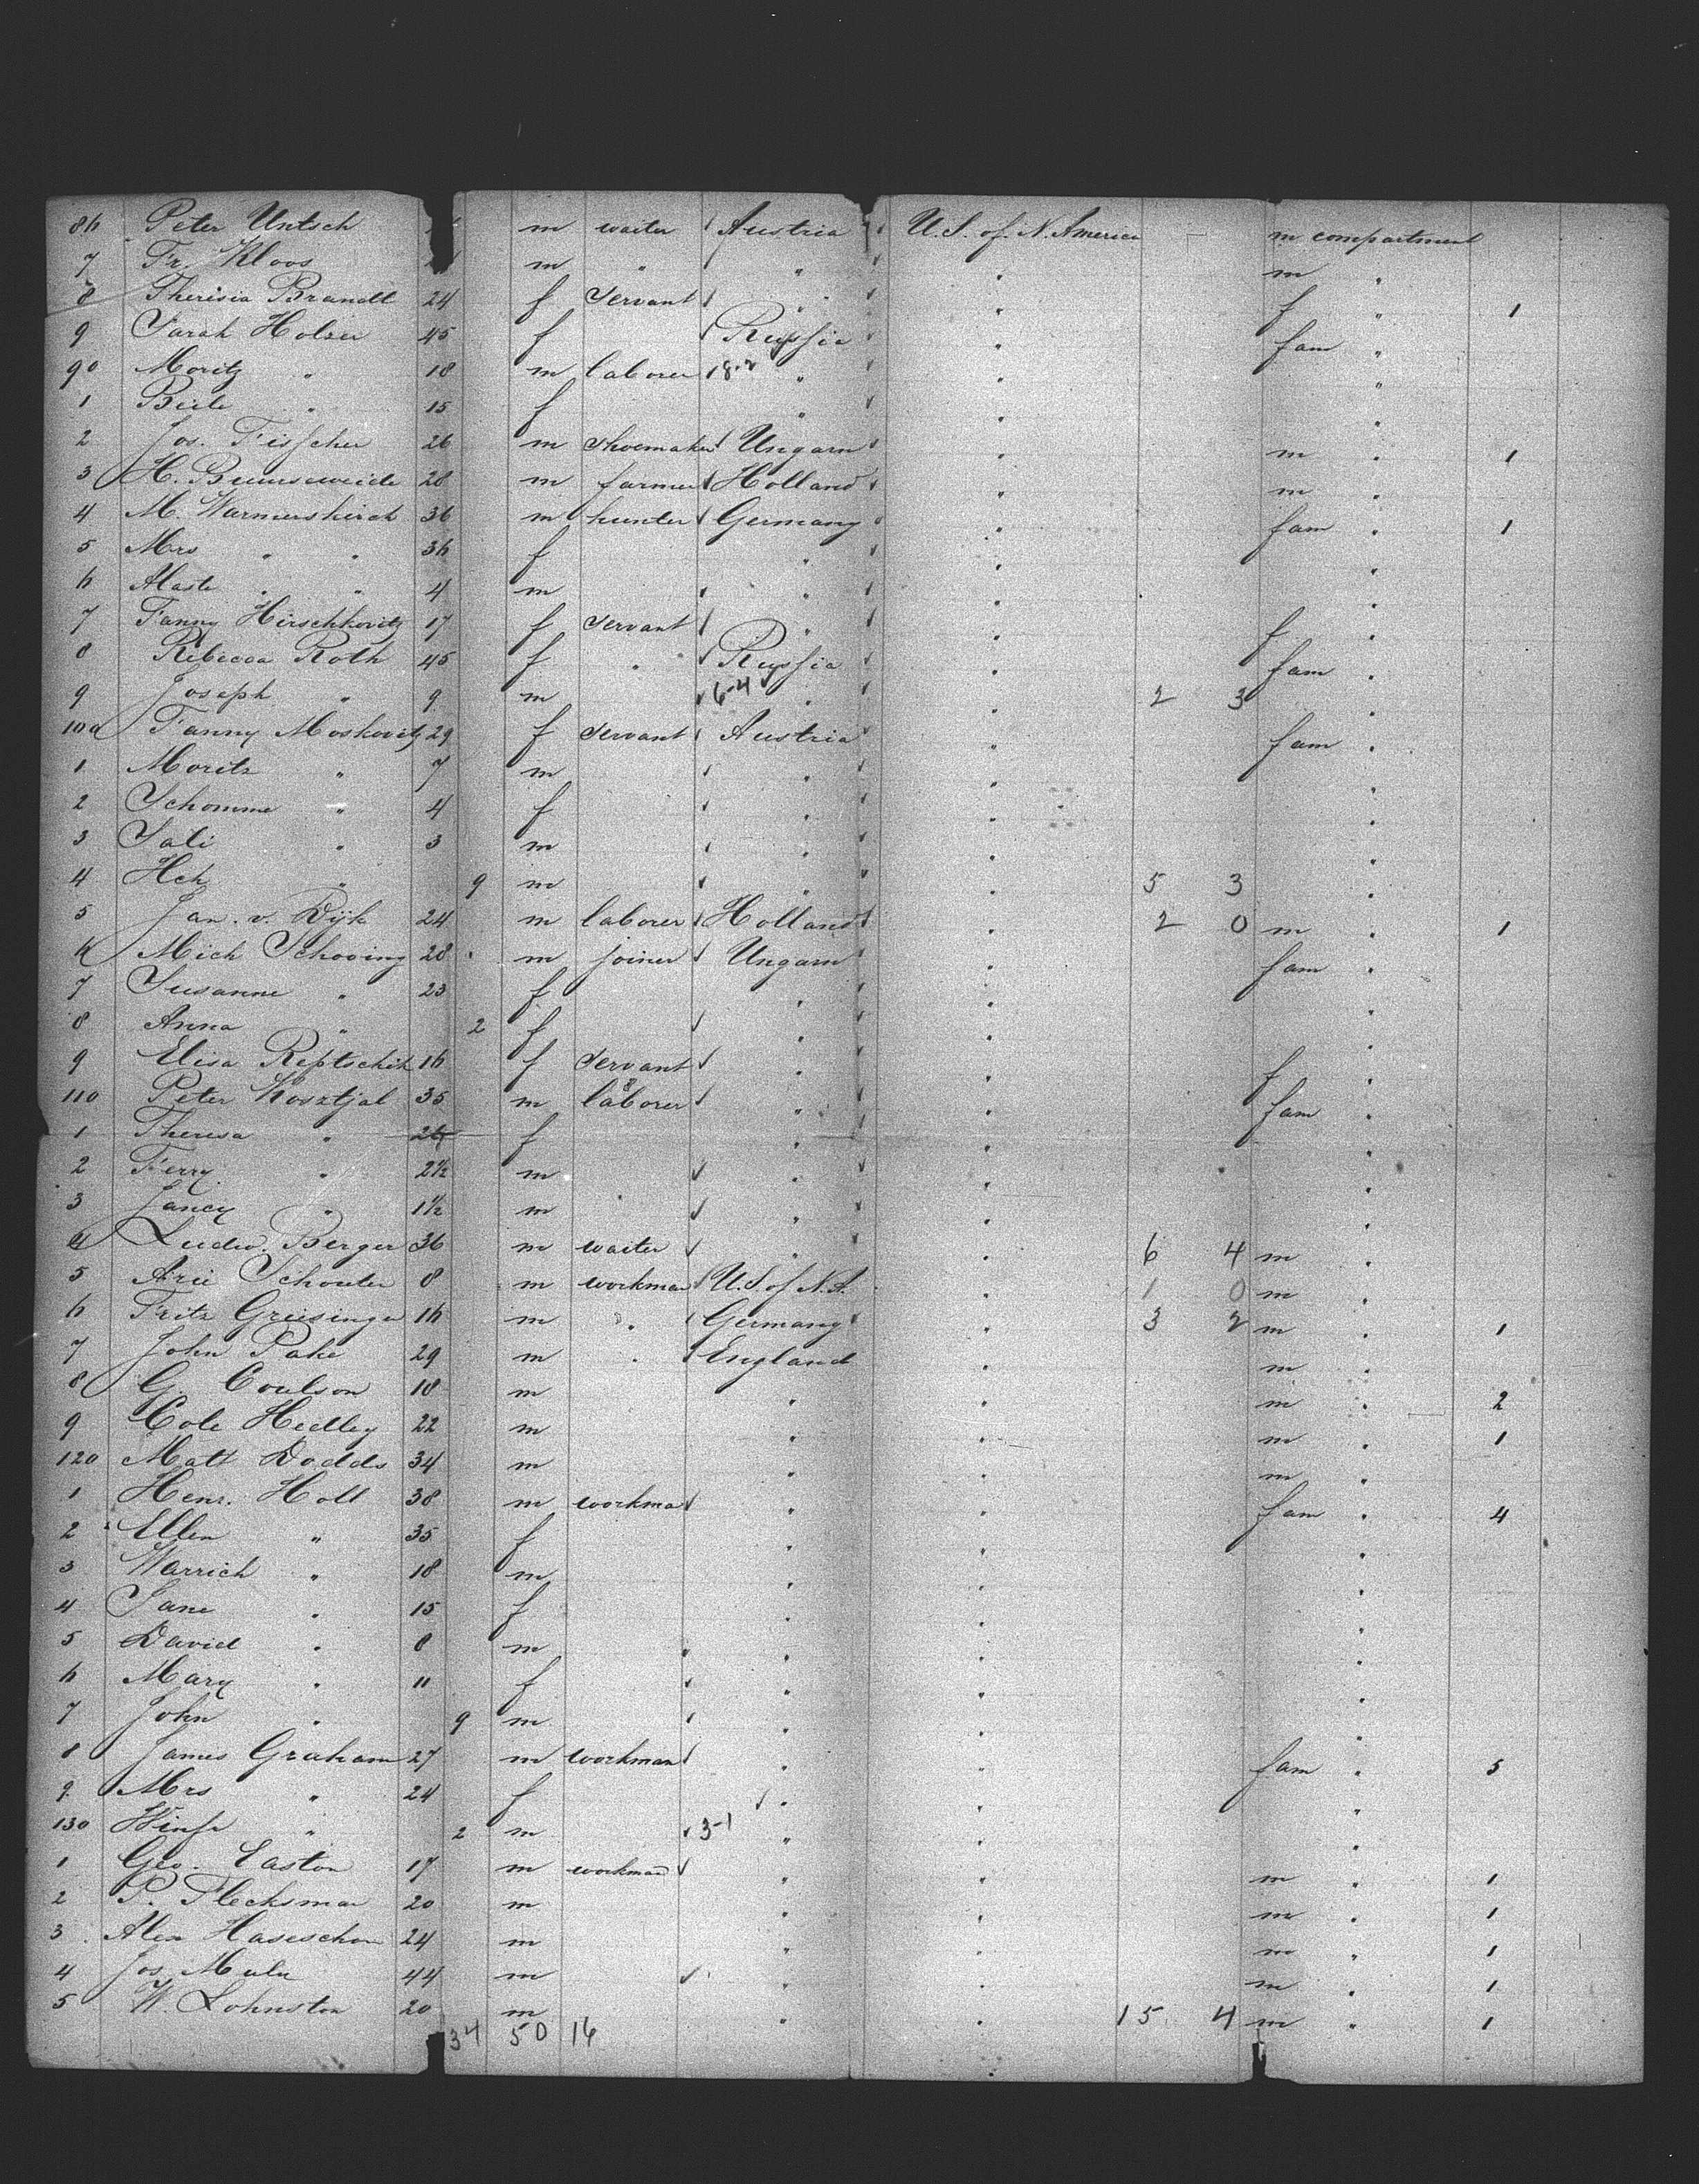 86 Peter Untsch m waiter Austria U.S. of N. America m compartment
7 Fr. Kloos m " " " m "
8 Theresia Brandt 24 f servant " " f " 1
9 Sarah Holzer 45 f Russia " fam "
90 Moritz " 18 m laborer 8-2 " " "
1 Beile " 15 f " " "
2 Jos. Fisscher 26 m shoemaker Ungarn " m " 1
3 H. 28 m farmer Holland " m "
4 M. Warmerskirch 36 m hunter Germany " fam " 1
5 Mrs " " 36 f " " "
6 Maste " " 4 m " " "
7 Fanny Hirschkovitz 17 f servant " " f "
8 Rebecca Roth 45 f " Russia " fam "
9 Joseph " 9 m 6-4 " " 2 3 "
100 Fanny Moskovitz 29 f servant Austria " fam "
1 Moritz " 7 m " " "
2 Schomme " 4 f " " "
3 Sali " 3 m " " "
4 Hch " 9 m " " 5 3 "
5 Jan. v. Dijk 24 m laborer Holland " 2 0 m " 1
6 Mich Schooing 28 m joiner Ungarn " fam "
7 Susanne " 23 f " " "
8 Anna " 2 f " " "
9 Elisa Reptschik 16 f servant " " f "
110 Peter Kosztjal 35 m laborer " " fam "
1 Theresa " 26 f " " "
2 Ferry " 2½ m " " "
3 Jancy " 1½ m " " "
4 Ludw. Berger 36 m waiter " " 6 4 m "
5 Arie Schouter 8 m workman U.S. of N.A. " 1 0 m "
6 Fritz Greisinger 16 m " Germany " 3 2 m " 1
7 John Pake 29 m " England " m "
8 G. Coulson 18 m " " m " 2
9 Cole Hedley 22 m " " m " 1
120 Matt Dodds 34 m " " m "
1 Henr. Holl 38 m workma " " fam " 4
2 Ellen " 35 f " " "
3 Warrich " 18 m " " "
4 Jane " 15 f " " "
5 David " 8 m " " "
6 Mary " 11 f " " "
7 John " 9 m " " "
8 James Graham 27 m workman " " fam " 5
9 Mrs " 24 f " " "
130 " 2 m 3-1 " " "
1 Geo. Easton 17 m workman " " m " 1
2 P. Flecksman 20 m " " m " 1
3 Alex 24 m " " m " 1
4 Jos. 44 m " " m " 1
5 W. Lohnston 20 m " " 15 4 m " 1
34 50 16